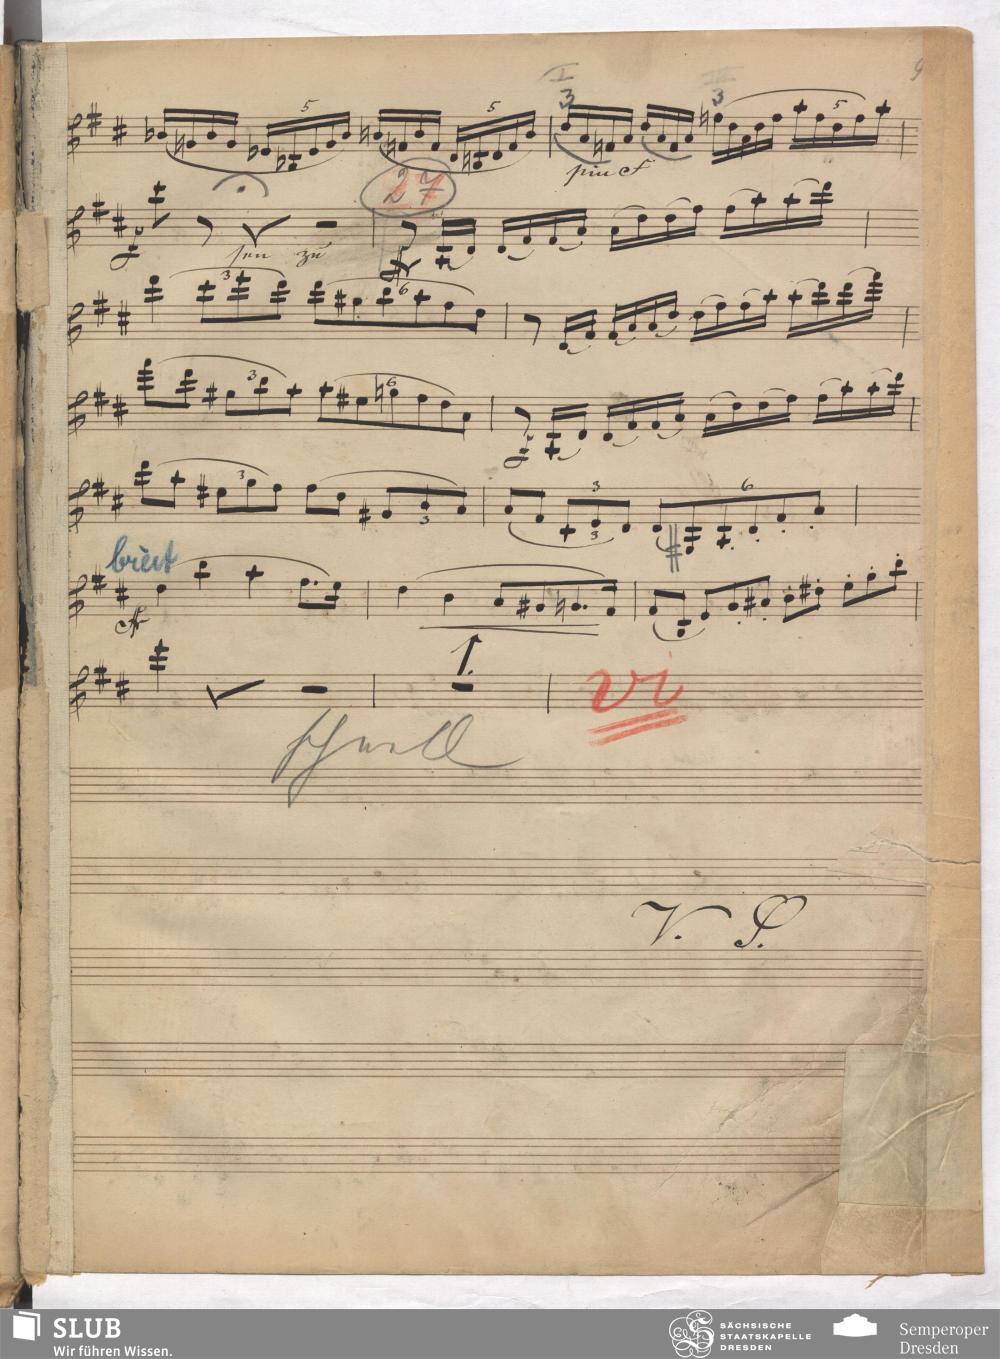 9
I III
3 3
5 5 5
più f
27
f
zu ff
3 6
3 6
f
3 3 3 6
3
breit
ff
1.
vi
schnell
V. S.
SLUB
Wir führen Wissen.
SÄCHSISCHE
STAATSKAPELLE
DRESDEN
Semperoper
Dresden